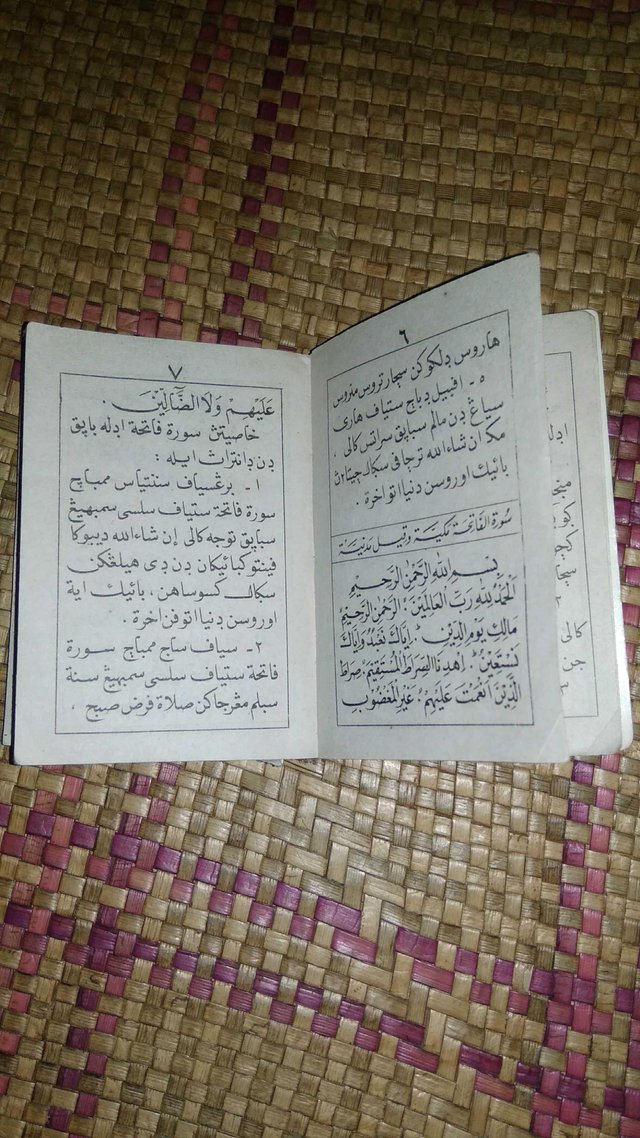 ٦
هاروس دلكوكن سچارتروس منروس
٥ - افبيل دباچ ستياف هارى
سياڠ دن مالم سبايق سراتس كالى ،
مك ان شاءالله ترچافى سݢالا چيتاءن
بائيك اوروسن دنيا اتو اخرة .
سُوْرَةُ الفَاتِحَةِ مَكِّيَّةٌ وَقِيْلَ مَدَنِيَّةٌ
بِسْمِ اللهِ الرَّحْمٰنِ الرَّحِيْمِ
اَلْحَمْدُ لِلّٰهِ رَبِّ الْعَالَمِيْنَ ؛ الرَّحْمٰنِ الرَّحِيْمِ ؛
مَالِكِ يَوْمِ الدِّيْنِ ؕ اِيَّاكَ نَعْبُدُ وَاِيَّاكَ
نَسْتَعِيْنُ ؕ اِهْدِنَا الصِّرَاطَ الْمُسْتَقِيْمَ ؛ صِرَاطَ
الَّذِيْنَ اَنْعَمْتَ عَلَيْهِمْ ؛ غَيْرِ الْمَغْضُوْبِ
٧
عَلَيْهِمْ وَلَا الضَّآلِّيْنَ .
خاصيتڽ سورة فاتحة ادله باڽق
دن دانتراڽ ايله :
١ - برڠسياف سنتياس ممباچ
سورة فاتحة ستياف سلسى سمبهيڠ
سبايق توجه كالى إن شاءالله ديبوكا
فينتو كبائيكان دن دى هيلڠكن
سݢالا كسوساهن ، بائيك اية
اوروسن دنيا اتوفن اخرة .
٢ - سياف ساج ممباچ سورة
فاتحة ستياف سلسى سمبهيڠ سنة
سبلم مڠرجاكن صلاة فرض صبح ،